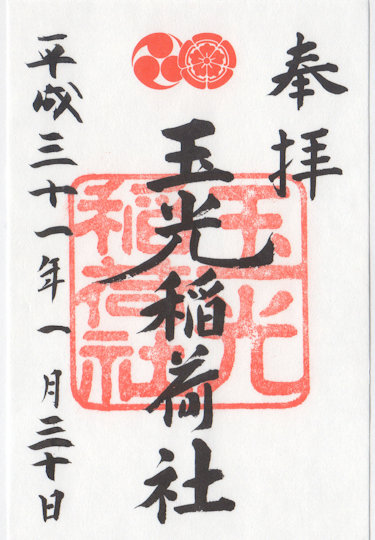 奉拝
玉光稲荷社
玉光
稲荷社
平成三十一年一月三十日